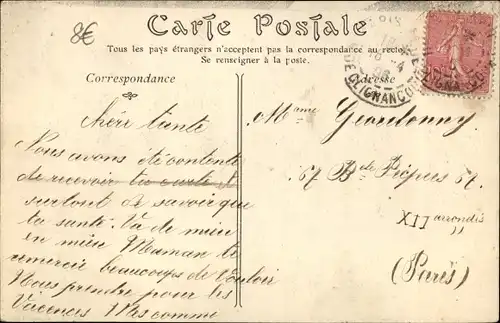 8€
Carte Postale
Tous les pays étrangers n'acceptent pas la correspondance au recto
Se renseigner à la poste.
Correspondance
Adresse
DE CLIGNANCO
Chère tante
Nous avons été contente
de recevoir ta carte et
surtout de savoir que
ta santé. Va de mieu
en mieu Maman te
remercie beaucoups de Vouloir
Nous prendre pour les
Vacences Mes comme
Mame
67 Bd Picpus 67
XII arrondis
(Paris)